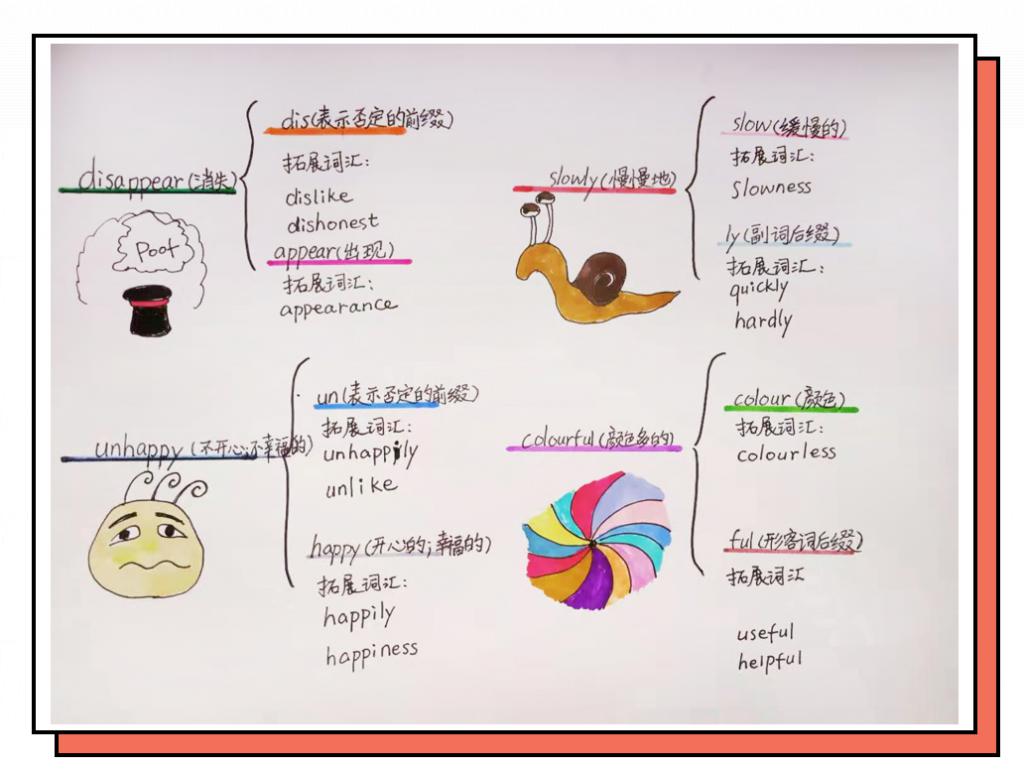 disappear(消失)
dis(表示否定的前缀)
拓展词汇:
dislike
dishonest
appear(出现)
拓展词汇:
appearance
Poof
slowly(慢慢地)
slow(缓慢的)
拓展词汇:
slowness
ly(副词后缀)
拓展词汇:
quickly
hardly
unhappy(不开心;不幸福的)
un(表示否定的前缀)
拓展词汇:
unhappily
unlike
happy(开心的;幸福的)
拓展词汇:
happily
happiness
colourful(颜色多的)
colour(颜色)
拓展词汇:
colourless
ful(形容词后缀)
拓展词汇
useful
helpful